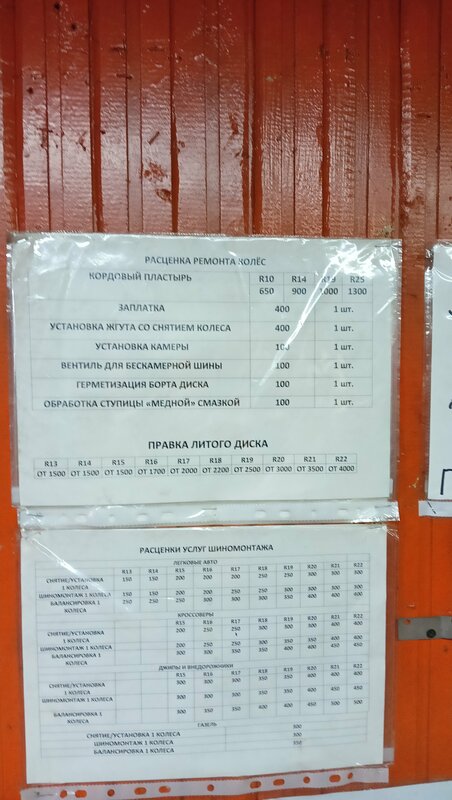 РАСЦЕНКА РЕМОНТА КОЛЁС
КОРДОВЫЙ ПЛАСТЫРЬ R10 R14 R19 R25
650 900 1000 1300
ЗАПЛАТКА 400 1 шт.
УСТАНОВКА ЖГУТА СО СНЯТИЕМ КОЛЕСА 400 1 шт.
УСТАНОВКА КАМЕРЫ 100 1 шт.
ВЕНТИЛЬ ДЛЯ БЕСКАМЕРНОЙ ШИНЫ 100 1 шт.
ГЕРМЕТИЗАЦИЯ БОРТА ДИСКА 100 1 шт.
ОБРАБОТКА СТУПИЦЫ «МЕДНОЙ» СМАЗКОЙ 100 1 шт.
ПРАВКА ЛИТОГО ДИСКА
R13 R14 R15 R16 R17 R18 R19 R20 R21 R22
ОТ 1500 ОТ 1500 ОТ 1500 ОТ 1700 ОТ 2000 ОТ 2200 ОТ 2500 ОТ 3000 ОТ 3500 ОТ 4000
РАСЦЕНКИ УСЛУГ ШИНОМОНТАЖА
ЛЕГКОВЫЕ АВТО
R13 R14 R15 R16 R17 R18 R19 R20 R21 R22
СНЯТИЕ/УСТАНОВКА 150 150 200 200 200 250 250 300 300 300
1 КОЛЕСА
ШИНОМОНТАЖ 1 КОЛЕСА 150 150 200 200 250 250 250 300 300 300
БАЛАНСИРОВКА 1 250 250 250 300 300 350 350 400 400 400
КОЛЕСА
КРОССОВЕРЫ
R15 R16 R17 R18 R19 R20 R21 R22
СНЯТИЕ/УСТАНОВКА 200 250 250 300 300 300 400 400
1 КОЛЕСА
ШИНОМОНТАЖ 1 КОЛЕСА 200 200 250 300 350 350 400 400
БАЛАНСИРОВКА 1 КОЛЕСА 300 300 350 350 400 400 450 450
ДЖИПЫ И ВНЕДОРОЖНИКИ
R15 R16 R17 R18 R19 R20 R21 R22
СНЯТИЕ/УСТАНОВКА 300 300 300 350 350 400 450 450
1 КОЛЕСА
ШИНОМОНТАЖ 1 КОЛЕСА 300 300 300 350 350 400 400 450
БАЛАНСИРОВКА 1 300 350 350 400 400 450 500 500
КОЛЕСА
ГАЗЕЛЬ
СНЯТИЕ/УСТАНОВКА 1 КОЛЕСА 300
ШИНОМОНТАЖ 1 КОЛЕСА 300
БАЛАНСИРОВКА 1 КОЛЕСА 350